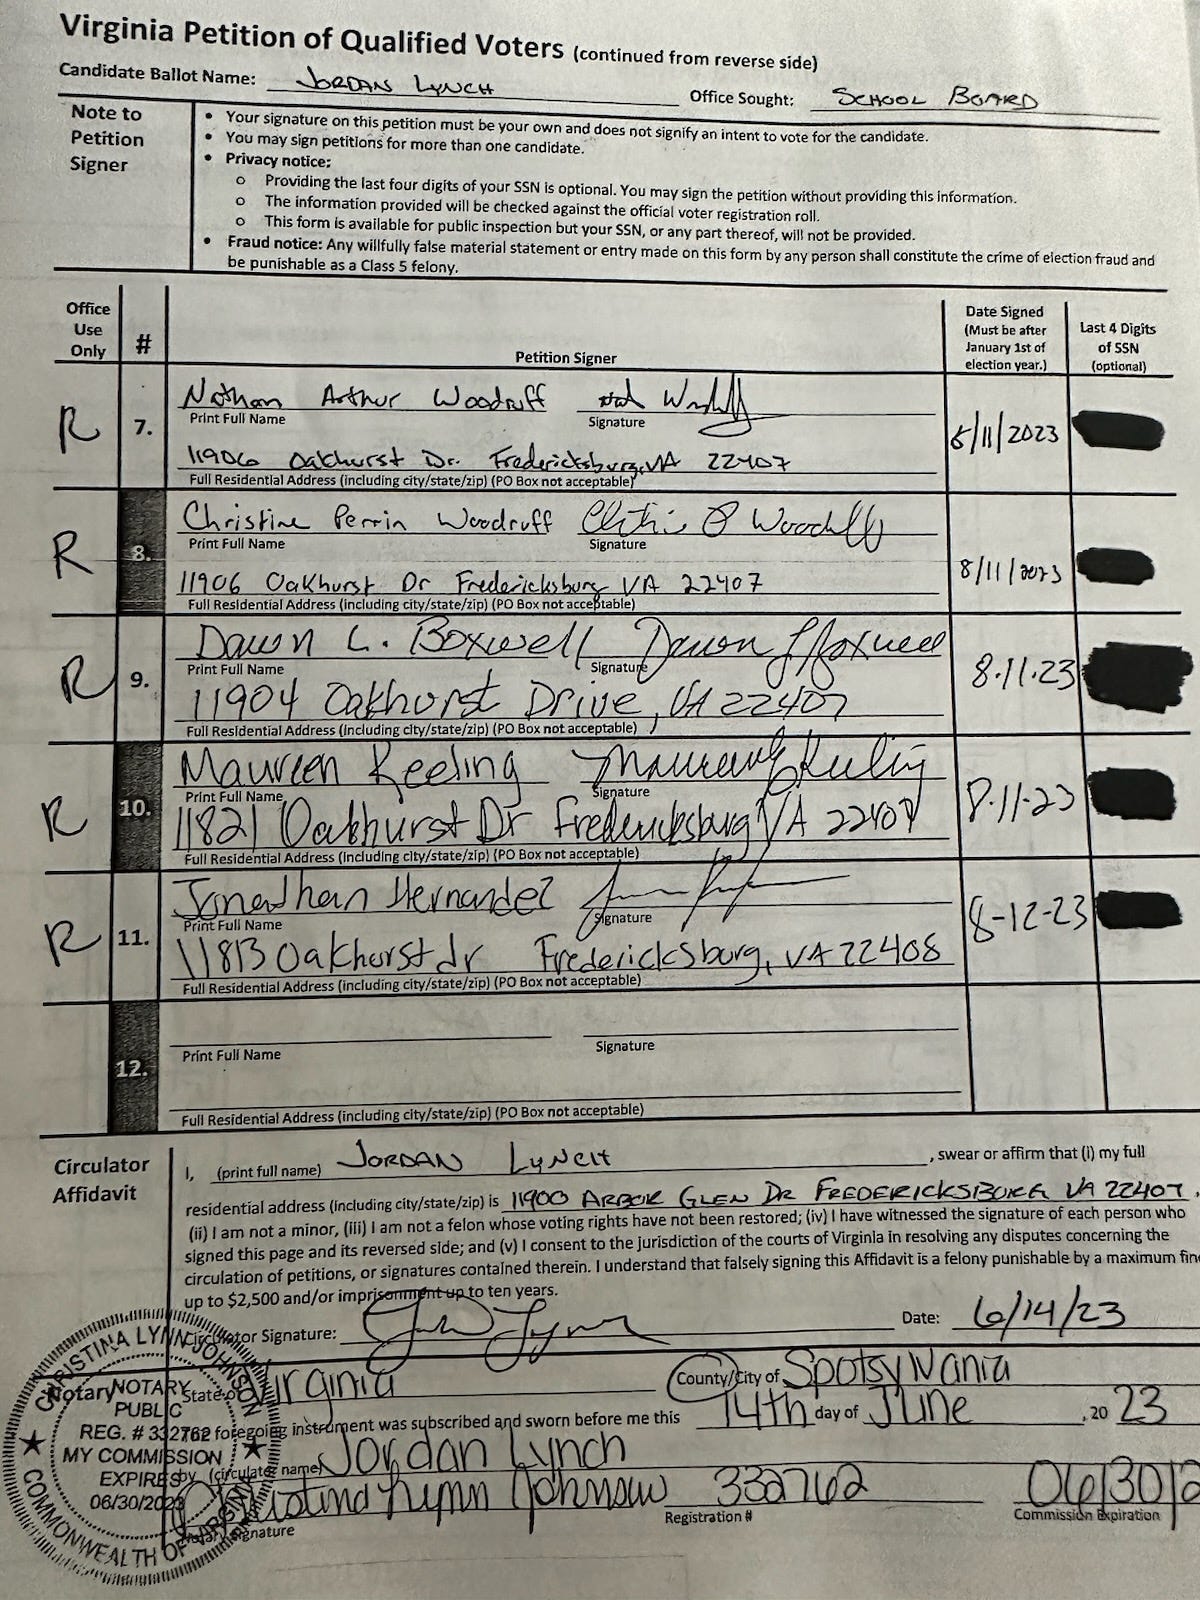 Virginia Petition of Qualified Voters (continued from reverse side)
Candidate Ballot Name: JORDAN LYNCH Office Sought: SCHOOL BOARD
Note to Petition Signer
• Your signature on this petition must be your own and does not signify an intent to vote for the candidate.
• You may sign petitions for more than one candidate.
• Privacy notice:
o Providing the last four digits of your SSN is optional. You may sign the petition without providing this information.
o The information provided will be checked against the official voter registration roll.
o This form is available for public inspection but your SSN, or any part thereof, will not be provided.
• Fraud notice: Any willfully false material statement or entry made on this form by any person shall constitute the crime of election fraud and
be punishable as a Class 5 felony.
Office Use Only # Petition Signer Date Signed (Must be after January 1st of election year.) Last 4 Digits of SSN (optional)
R 7. Nathan Arthur Woodruff
Print Full Name Signature
11906 Oakhurst Dr. Fredericksburg, VA 22407 /11/2023
Full Residential Address (including city/state/zip) (PO Box not acceptable)
R 8. Christine Perrin Woodruff
Print Full Name Signature
11906 Oakhurst Dr Fredericksburg VA 22407 8/11/2023
Full Residential Address (including city/state/zip) (PO Box not acceptable)
R 9. Dawn L. Boxwell Dawn L Boxwell 8.11.23
Print Full Name Signature
11904 Oakhurst Drive, VA 22407
Full Residential Address (including city/state/zip) (PO Box not acceptable)
R 10. Maureen Keeling Maureen Keeling 8-11-23
Print Full Name Signature
11821 Oakhurst Dr Fredericksburg VA 22407
Full Residential Address (including city/state/zip) (PO Box not acceptable)
R 11. Jonathan Hernandez 8-12-23
Print Full Name Signature
11813 Oakhurst dr Fredericksburg, VA 22408
Full Residential Address (including city/state/zip) (PO Box not acceptable)
12.
Print Full Name Signature
Full Residential Address (including city/state/zip) (PO Box not acceptable)
Circulator Affidavit
I, (print full name) JORDAN LYNCH , swear or affirm that (i) my full
residential address (including city/state/zip) is 11900 ARBOR GLEN DR FREDERICKSBURG VA 22407.
(ii) I am not a minor, (iii) I am not a felon whose voting rights have not been restored; (iv) I have witnessed the signature of each person who
signed this page and its reversed side; and (v) I consent to the jurisdiction of the courts of Virginia in resolving any disputes concerning the
circulation of petitions, or signatures contained therein. I understand that falsely signing this Affidavit is a felony punishable by a maximum fine
up to $2,500 and/or imprisonment up to ten years.
Circulator Signature: Date: 6/14/23
Notary State of Virginia County/City of Spotsylvania
foregoing instrument was subscribed and sworn before me this 14th day of June , 20 23
by (circulator name) Jordan Lynch
Christina Lynn Johnson 332762 06/30/2
Notary Signature Registration # Commission Expiration
CHRISTINA LYNN JOHNSON
NOTARY
PUBLIC
REG. # 332762
MY COMMISSION
EXPIRES
06/30/2023
COMMONWEALTH OF VIRGINIA